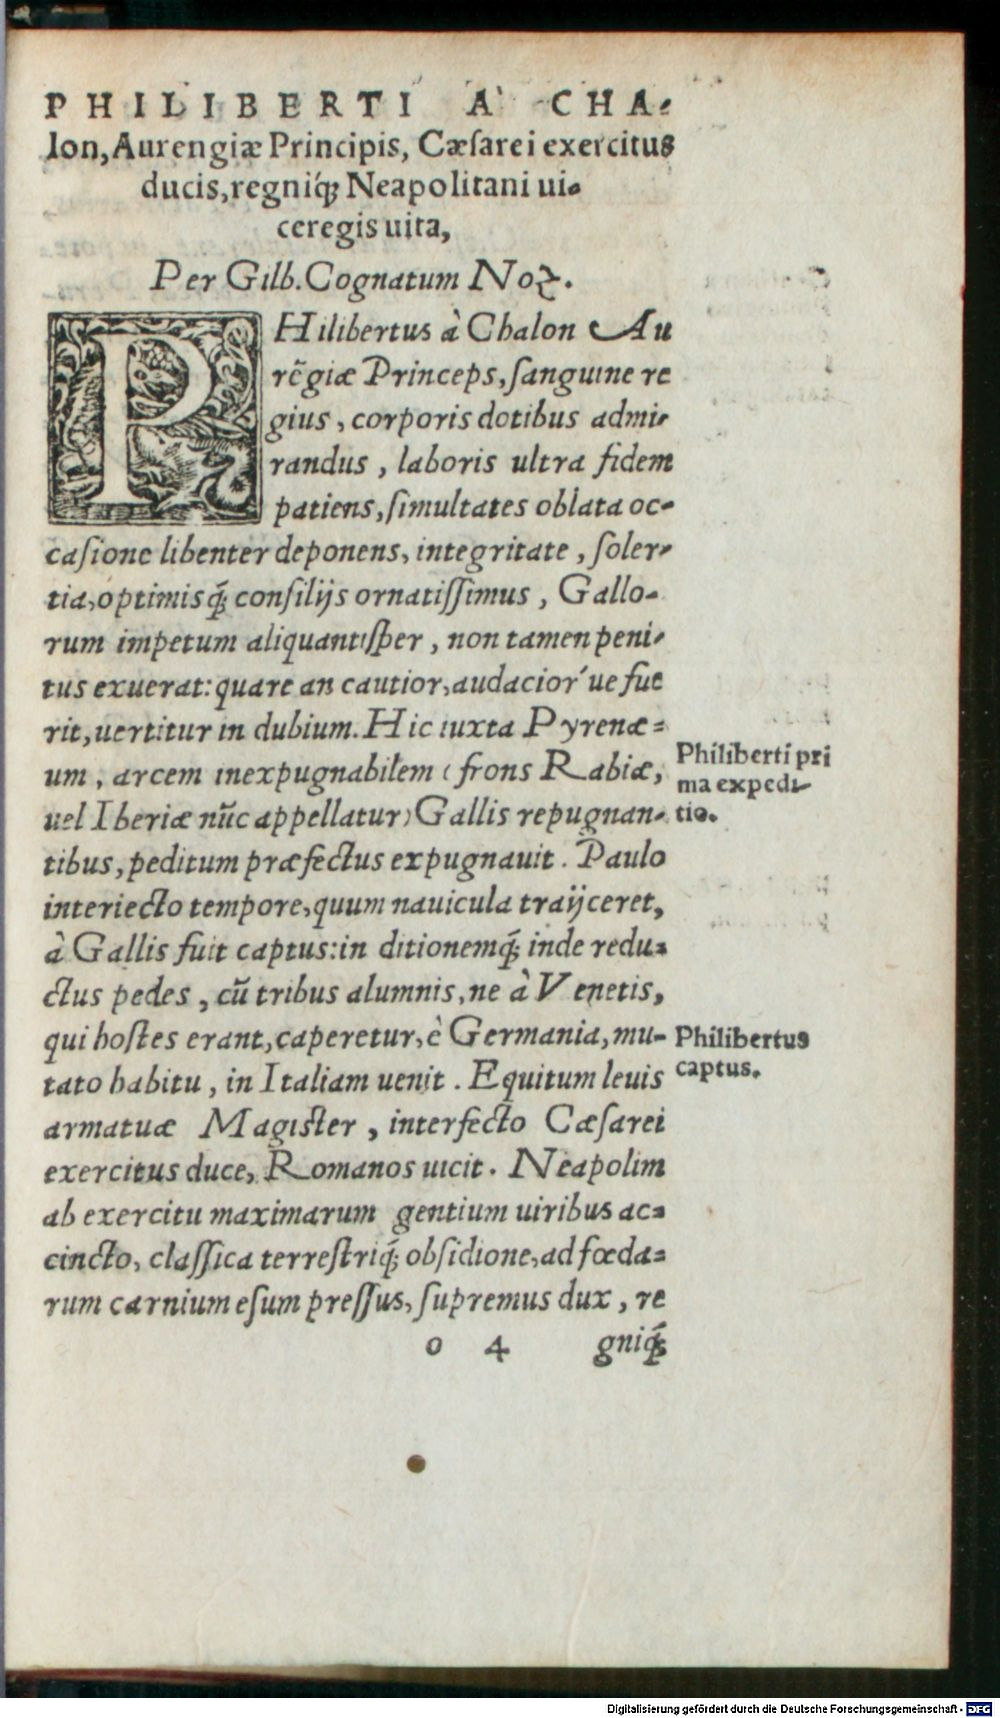 PHILIBERTI A' CHA-
lon, Aurengiæ Principis, Cæsarei exercitus
ducis, regniq́; Neapolitani ui-
ceregis uita,
Per Gilb. Cognatum Noꝝ.
PHilibertus à Chalon Au
rẽgiæ Princeps, ſanguine re
gius, corporis dotibus admi-
randus, laboris ultra fidem
patiens, ſimultates oblata oc-
caſione libenter deponens, integritate, ſoler-
tia, optimisq́; conſilijs ornatiſſimus, Gallo-
rum impetum aliquantiſper, non tamen peni-
tus exuerat: quare an cautior, audacior' ue fue
rit, uertitur in dubium. Hic iuxta Pyrenæ-
um, arcem inexpugnabilem (frons Rabiæ,
uel Iberiæ nũc appellatur) Gallis repugnan-
tibus, peditum præfectus expugnauit. Paulo
interiecto tempore, quum nauicula traijceret,
à Gallis fuit captus: in ditionemq́; inde redu-
ctus pedes, cũ tribus alumnis, ne à Venetis,
qui hoſtes erant, caperetur, è Germania, mu-
tato habitu, in Italiam uenit. Equitum leuis
armatuæ Magiſter, interfecto Cæſarei
exercitus duce, Romanos uicit. Neapolim
ab exercitu maximarum gentium uiribus ac-
cincto, claſſica terreſtriq́; obſidione, ad fœda-
rum carnium eſum preſſus, ſupremus dux, re
o 4 gniq́;
Philiberti pri
ma expedi-
tio.
Philibertus
captus.
Digitalisierung gefördert durch die Deutsche Forschungsgemeinschaft - DFG